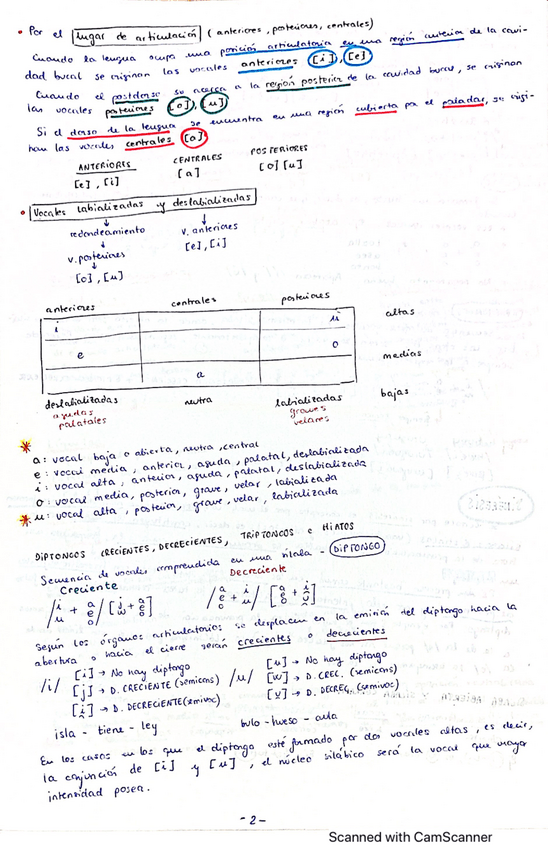 • Por el lugar de articulación (anteriores, posteriores, centrales)
Cuando la lengua ocupa una posición articulatoria en una región anterior de la cavi-
dad bucal se originan las vocales anteriores [i], [e]
Cuando el postdorso se acerca a la región posterior de la cavidad bucal, se originan
las vocales posteriores [o], [u]
Si el dorso de la lengua se encuentra en una región cubierta por el paladar, se origi-
nan las vocales centrales [a]
ANTERIORES CENTRALES POSTERIORES
[e], [i] [a] [o] [u]
• Vocales labializadas y deslabializadas
redondeamiento v. anteriores
v. posteriores [e], [i]
[o], [u]
anteriores centrales posteriores
i u altas
e o medias
a bajas
deslabializadas neutra labializadas
agudas graves
palatales velares
a: vocal baja o abierta, neutra, central
e: vocal media, anterior, aguda, palatal, deslabializada
i: vocal alta, anterior, aguda, palatal, deslabializada
o: vocal media, posterior, grave, velar, labializada
u: vocal alta, posterior, grave, velar, labializada
DIPTONGOS CRECIENTES, DECRECIENTES, TRIPTONGOS e HIATOS
Secuencia de vocales comprendida en una sílaba - DIPTONGO
Creciente Decreciente
/i u + a e o/ [j w + a e o] /a e o + i u/ [a e o + i̯ u̯]
Según los órganos articulatorios se desplacen en la emisión del diptongo hacia la
abertura o hacia el cierre serán crecientes o decrecientes
/i/ [i] → No hay diptongo /u/ [u] → No hay diptongo
[j] → D. CRECIENTE (semicons) [w] → D. CREC. (semicons)
[i̯] → D. DECRECIENTE (semivoc) [u̯] → D. DECREC. (semivoc)
isla - tiene - ley bulo - hueso - aula
En los casos en los que el diptongo esté formado por dos vocales altas, es decir,
la conjunción de [i] y [u], el núcleo silábico será la vocal que mayor
intensidad posea.
- 2 -
Scanned with CamScanner